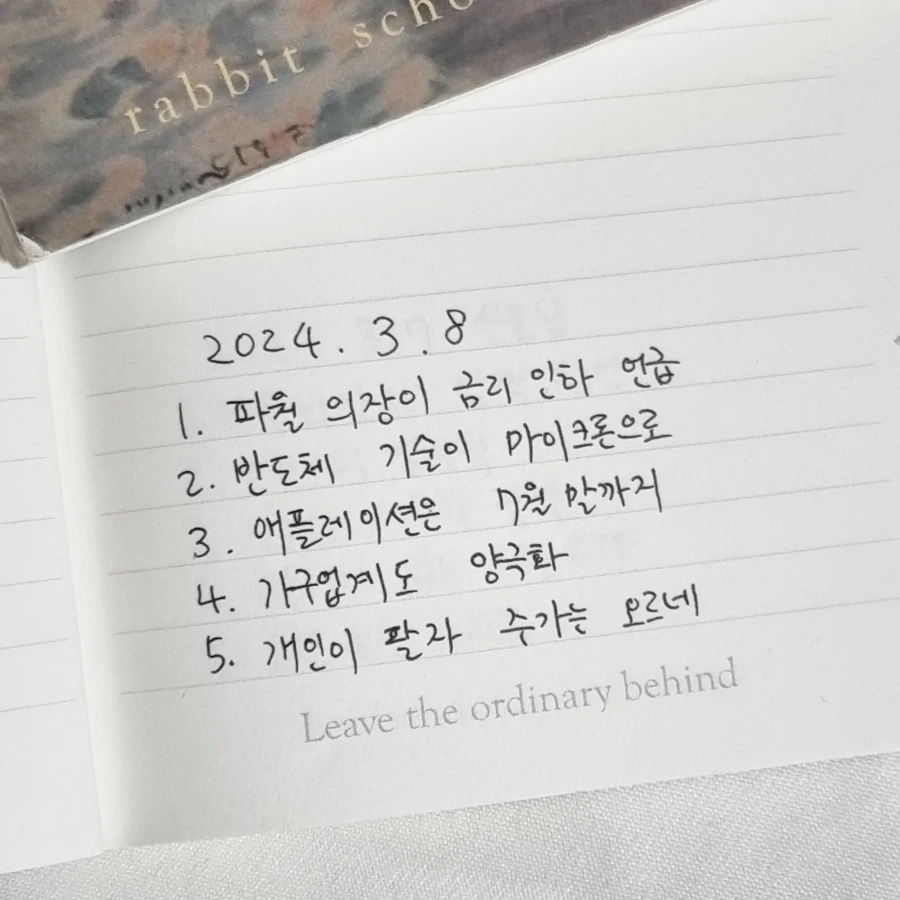 rabbit
2024. 3. 8
1. 파월 의장이 금리 인하 언급
2. 반도체 기술이 마이크론으로
3. 애플레이션은 7월 말까지
4. 가구업계도 양극화
5. 개인이 팔자 주가는 오르네
Leave the ordinary behind